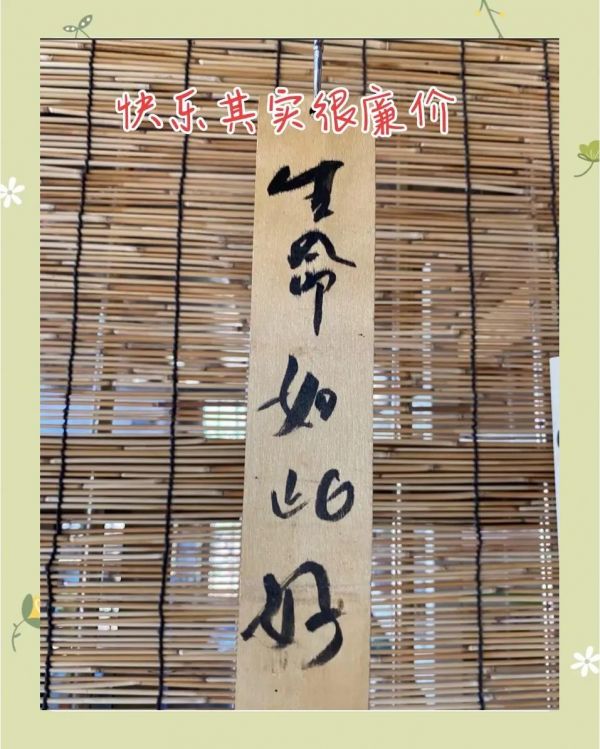 快乐其实很廉价
生命如此好